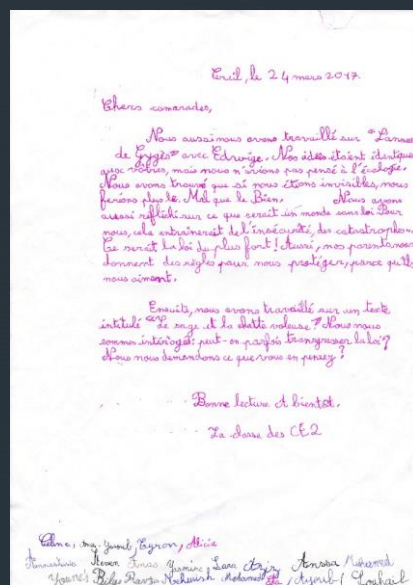 Creil, le 24 mars 2017.
Chers camarades,
Nous aussi nous avons travaillé sur "L'anneau
de Gygès" avec Edwige. Nos idées étaient identiques
avec vôtres, mais nous n'avions pas pensé à l'écologie.
Nous avons trouvé que si nous étions invisibles, nous
ferions plus le Mal que le Bien. Nous avons
aussi réfléchi sur ce que serait un monde sans loi. Pour
nous, cela entraînerait de l'insécurité, des catastrophes.
Ce serait la loi du plus fort ! Aussi, nos parents nous
donnent des règles pour nous protéger, parce qu'ils
nous aiment.
Ensuite, nous avons travaillé sur un texte
intitulé "Le sage et la chatte voleuse". Nous nous
sommes intérrogés : peut-on parfois transgresser la loi ?
Nous nous demandons ce que vous en pensez ?
Bonne lecture et bientôt.
La classe des CE2
Célina, Tyron, Alicia
Steven Inas Yasmine, Sara Anissa Mohamed
Younès Bilal Rayan Mohamed, Ayoub